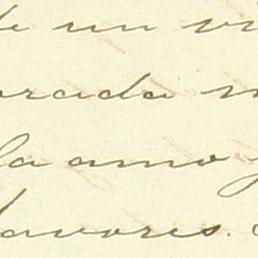 de un vi
orada m
la amo y
favores.